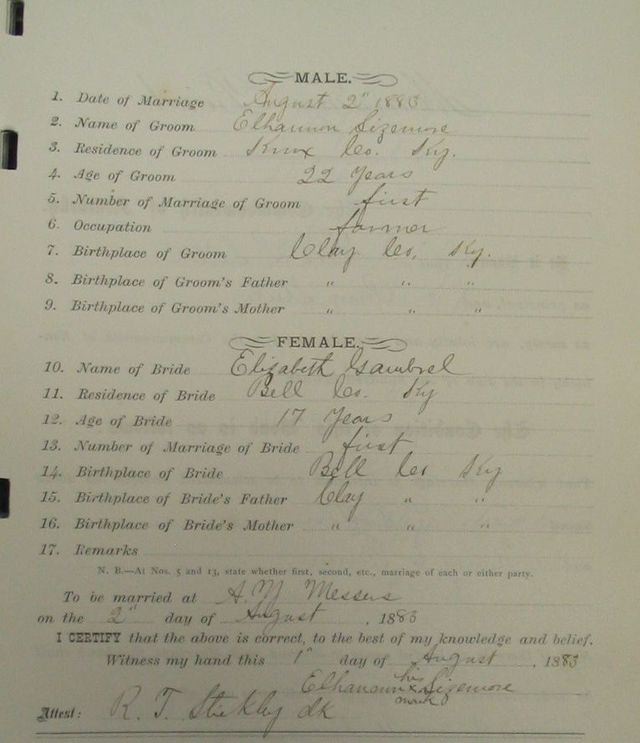 MALE.
1. Date of Marriage August 2" 1883
2. Name of Groom Elhannon Sizemore
3. Residence of Groom Knox Co. Ky.
4. Age of Groom 22 Years
5. Number of Marriage of Groom first
6. Occupation farmer
7. Birthplace of Groom Clay Co, Ky.
8. Birthplace of Groom's Father " " "
9. Birthplace of Groom's Mother " " "
FEMALE.
10. Name of Bride Elizabeth Gambrel
11. Residence of Bride Bell Co. Ky
12. Age of Bride 17 Years
13. Number of Marriage of Bride first
14. Birthplace of Bride Bell Co Ky
15. Birthplace of Bride's Father Clay " "
16. Birthplace of Bride's Mother " " "
17. Remarks
N. B.—At Nos. 5 and 13, state whether first, second, etc., marriage of each or either party.
To be married at A. M Messers
on the 2" day of August , 1883
I CERTIFY that the above is correct, to the best of my knowledge and belief.
Witness my hand this 1" day of August , 1883
his
Elhannon x Sizemore
mark
Attest: R. T. clk